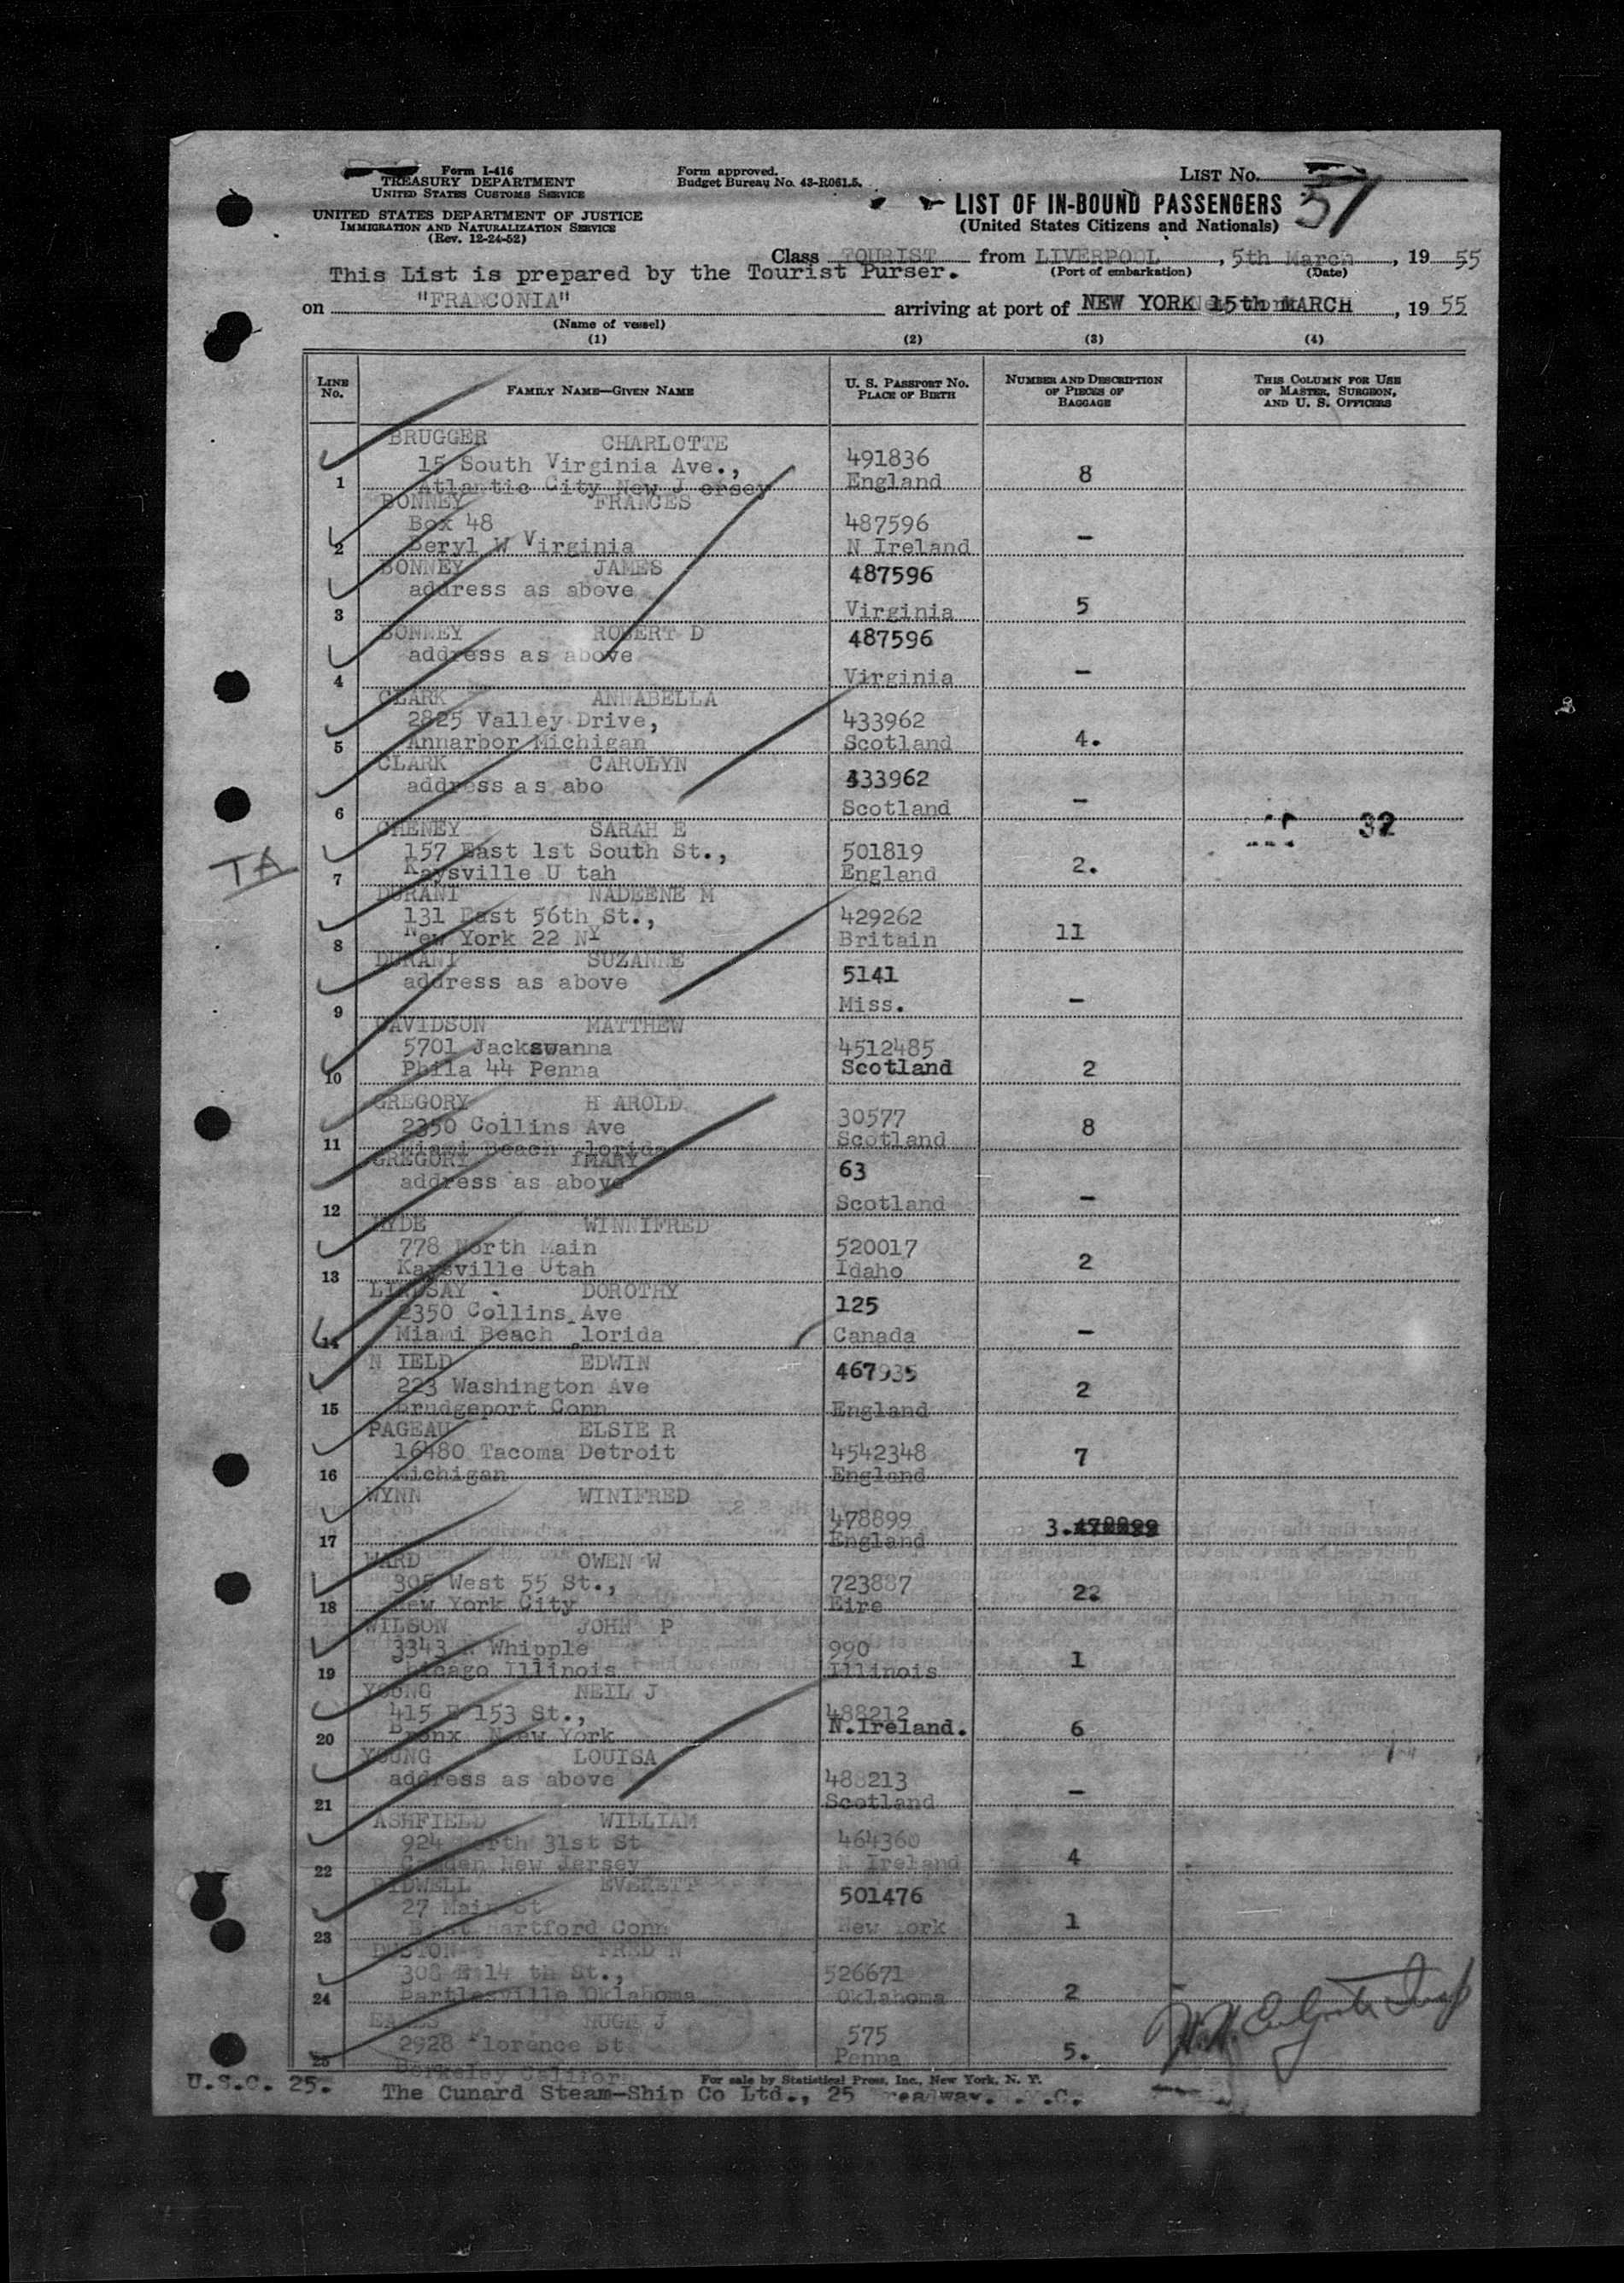 Form I-416
TREASURY DEPARTMENT
UNITED STATES CUSTOMS SERVICE
UNITED STATES DEPARTMENT OF JUSTICE
IMMIGRATION AND NATURALIZATION SERVICE
(Rev. 12-24-52)
Form approved.
Budget Bureau No. 43-R061.5.
LIST No. 37
LIST OF IN-BOUND PASSENGERS
(United States Citizens and Nationals)
Class TOURIST from LIVERPOOL, 5th March, 19 55
(Port of embarkation) (Date)
This List is prepared by the Tourist Purser.
on "FRANCONIA" arriving at port of NEW YORK 15th MARCH, 19 55
(Name of vessel)
(1) (2) (3) (4)
LINE No. FAMILY NAME—GIVEN NAME U. S. PASSPORT No. PLACE OF BIRTH NUMBER AND DESCRIPTION OF PIECES OF BAGGAGE THIS COLUMN FOR USE OF MASTER, SURGEON, AND U. S. OFFICERS
BRUGGER CHARLOTTE
15 South Virginia Ave., 491836
1 Atlantic City New J ersey England 8
BONNEY FRANCES
Box 48 487596
2 Beryl W Virginia N Ireland –
BONNEY JAMES 487596
address as above
3 Virginia 5
BONNEY ROBERT D 487596
address as above
4 Virginia –
CLARK ANNABELLA
2825 Valley Drive, 433962
5 Annarbor Michigan Scotland 4.
CLARK CAROLYN 433962
address as abo
6 Scotland –
32
CHENEY SARAH E
TA
157 East 1st South St., 501819
7 Kaysville U tah England 2.
DURANT NADEENE M
131 East 56th St., 429262
8 New York 22 NY Britain 11
DURANT SUZANNE 5141
address as above
9 Miss. –
DAVIDSON MATTHEW
5701 Jackswanna 4512485
10 Phila 44 Penna Scotland 2
GREGORY H AROLD
2350 Collins Ave 30577
11 Miami Beach lorida Scotland 8
GREGORY MARY 63
address as above
12 Scotland –
HYDE WINNIFRED
778 North Main 520017
13 Kaysville Utah Idaho 2
LINDSAY DOROTHY 125
2350 Collins Ave
14 Miami Beach lorida Canada –
N IELD EDWIN 467935
223 Washington Ave 2
15 Brudgeport Conn England
PAGEAU ELSIE R
16480 Tacoma Detroit 4542348 7
16 Michigan England
WYNN WINIFRED
478899 3. 478899
17 England
WARD OWEN W
305 West 55 St., 723887
18 New York City Eire 22
WILSON JOHN P
3343 N Whipple 990
19 Chicago Illinois Illinois 1
YOUNG NEIL J
415 E 153 St., 488212
20 Bronx New York N.Ireland. 6
YOUNG LOUISA
address as above 488213
21 Scotland –
ASHFIELD WILLIAM
924 North 31st St 464360
22 Camden New Jersey N Ireland 4
BIDWELL EVERETT 501476
27 Main St
23 East Hartford Conn New York 1
DUSTON FRED N
308 E 14 th St., 526671
24 Bartlesville Oklahoma Oklahoma 2
HUGH J
2928 Florence St 575
25 Penna 5.
Berkeley Califor
For sale by Statistical Press, Inc., New York, N. Y.
U.S.C. 25.
The Cunard Steam-Ship Co Ltd., 25